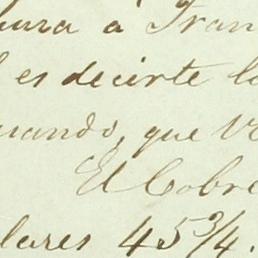 ura á Fran
es decirte lo
uando, que V
El Cobre
lares 45 3/4.